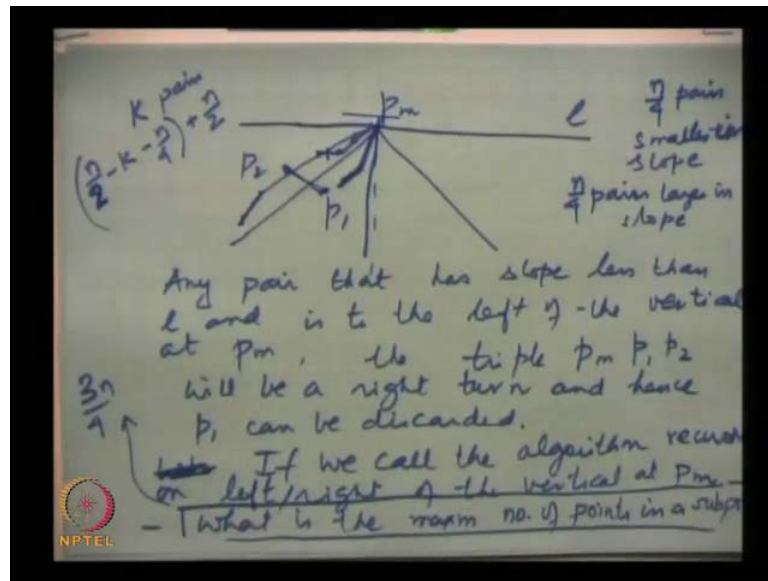 K pair
(n/2 - K - n/4) + n/2
Pm
l
P2
P1
n/4 pair
smaller in
slope
n/4 pairs larger in
slope
Any pair that has slope less than
l and is to the left of the vertical
at Pm, the triple Pm P1 P2
will be a right turn and hence
P1 can be discarded.
3n/4
If we call the algorithm recurs
on left/right of the vertical at Pm -
- What is the maxm no. of points in a subpr
NPTEL